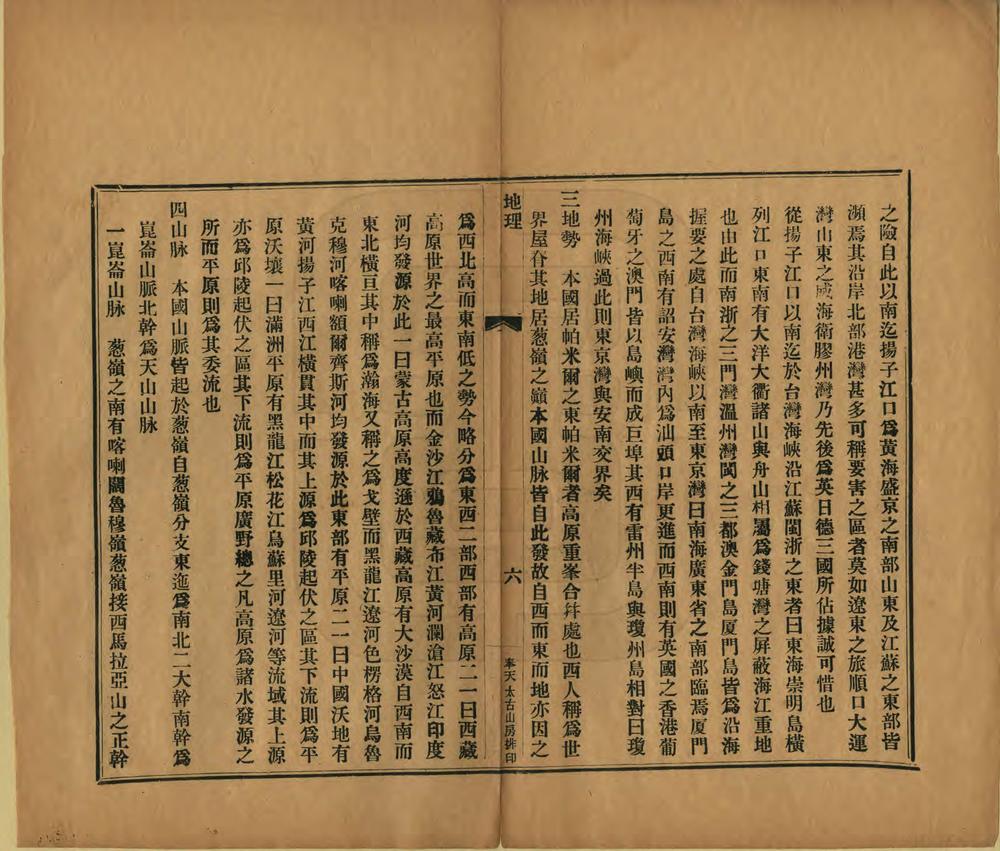 之險自此以南迄揚子江口爲黃海盛京之南部山東及江蘇之東部皆
瀕焉其沿岸北部港灣甚多可稱要害之區者莫如遼東之旅順口大連
灣山東之威海衛膠州灣乃先後爲英日德三國所佔據誠可惜也
從揚子江口以南迄於台灣海峽沿江蘇閩浙之東者曰東海崇明島橫
列江口東南有大洋大衢諸山與舟山相屬爲錢塘灣之屏蔽海江重地
也由此而南浙之三門灣溫州灣閩之三都澳金門島厦門島皆爲沿海
握要之處自台灣海峽以南至東京灣曰南海廣東省之南部臨焉厦門
島之西南有詔安灣灣內爲汕頭口岸更進而西南則有英國之香港葡
萄牙之澳門皆以島嶼而成巨埠其西有雷州半島與瓊州島相對曰瓊
州海峽過此則東京灣與安南交界矣
三地勢　本國居帕米爾之東帕米爾者高原重峯合幷處也西人稱爲世
界屋脊其地居葱嶺之巓本國山脉皆自此發故自西而東而地亦因之
地理
六
奉天太古山房排印
爲西北高而東南低之勢今略分爲東西二部西部有高原二一曰西藏
高原世界之最高平原也而金沙江鴉魯藏布江黃河瀾滄江怒江印度
河均發源於此一曰蒙古高原高度遜於西藏高原有大沙漠自西南而
東北橫亘其中稱爲瀚海又稱之爲戈壁而黑龍江遼河色楞格河烏魯
克穆河喀喇額爾齊斯河均發源於此東部有平原二一曰中國沃地有
黃河揚子江西江橫貫其中而其上源爲邱陵起伏之區其下流則爲平
原沃壤一曰滿洲平原有黑龍江松花江烏蘇里河遼河等流域其上源
亦爲邱陵起伏之區其下流則爲平原廣野總之凡高原爲諸水發源之
所而平原則爲其委流也
四山脉　本國山脈皆起於葱嶺自葱嶺分支東迤爲南北二大幹南幹爲
崑崙山脈北幹爲天山山脉
一崑崙山脉　葱嶺之南有喀喇闢魯穆嶺葱嶺接西馬拉亞山之正幹